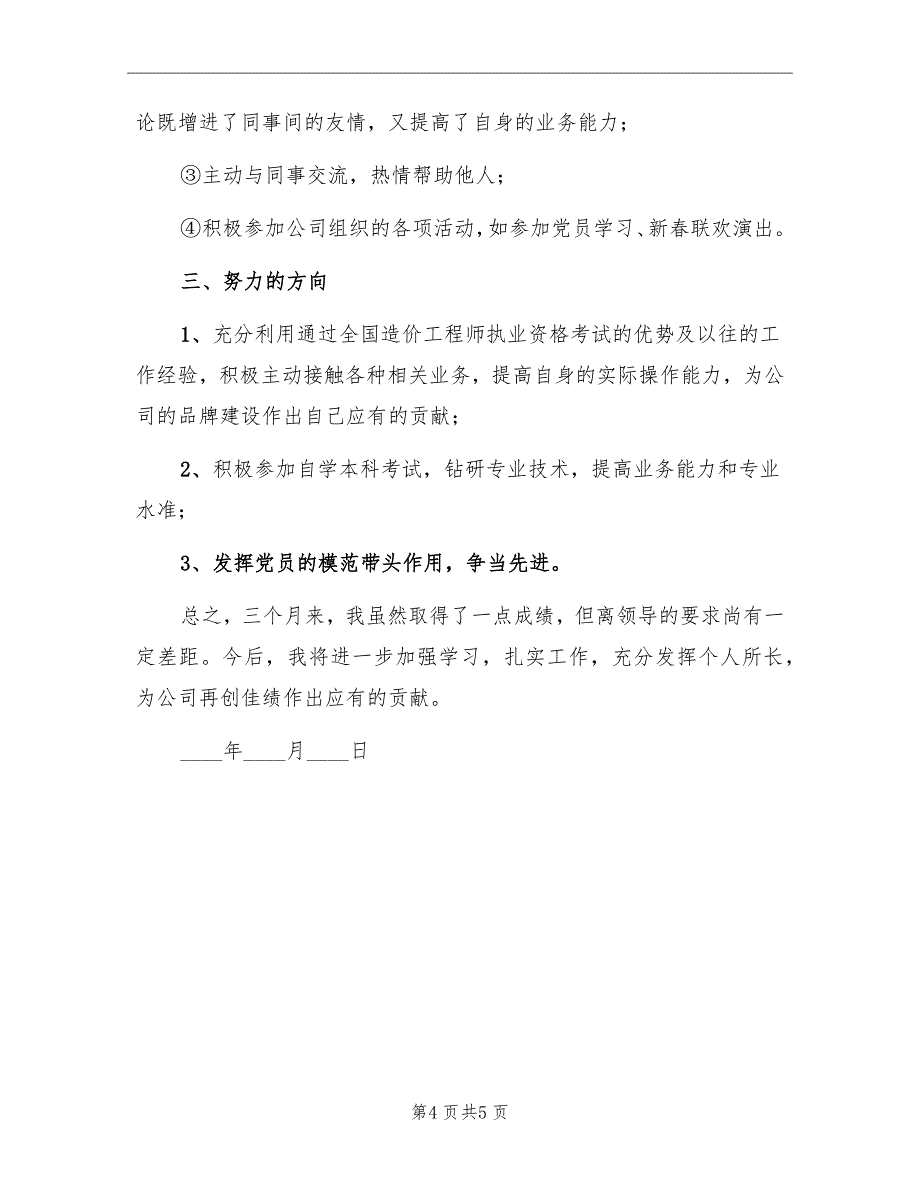 论既增进了同事间的友情，又提高了自身的业务能力；
③主动与同事交流，热情帮助他人；
④积极参加公司组织的各项活动，如参加党员学习、新春联欢演出。
三、努力的方向
1、充分利用通过全国造价工程师执业资格考试的优势及以往的工
作经验，积极主动接触各种相关业务，提高自身的实际操作能力，为公
司的品牌建设作出自己应有的贡献；
2、积极参加自学本科考试，钻研专业技术，提高业务能力和专业
水准；
3、发挥党员的模范带头作用，争当先进。
总之，三个月来，我虽然取得了一点成绩，但离领导的要求尚有一
定差距。今后，我将进一步加强学习，扎实工作，充分发挥个人所长，
为公司再创佳绩作出应有的贡献。
____年____月____日
第4 页共5 页